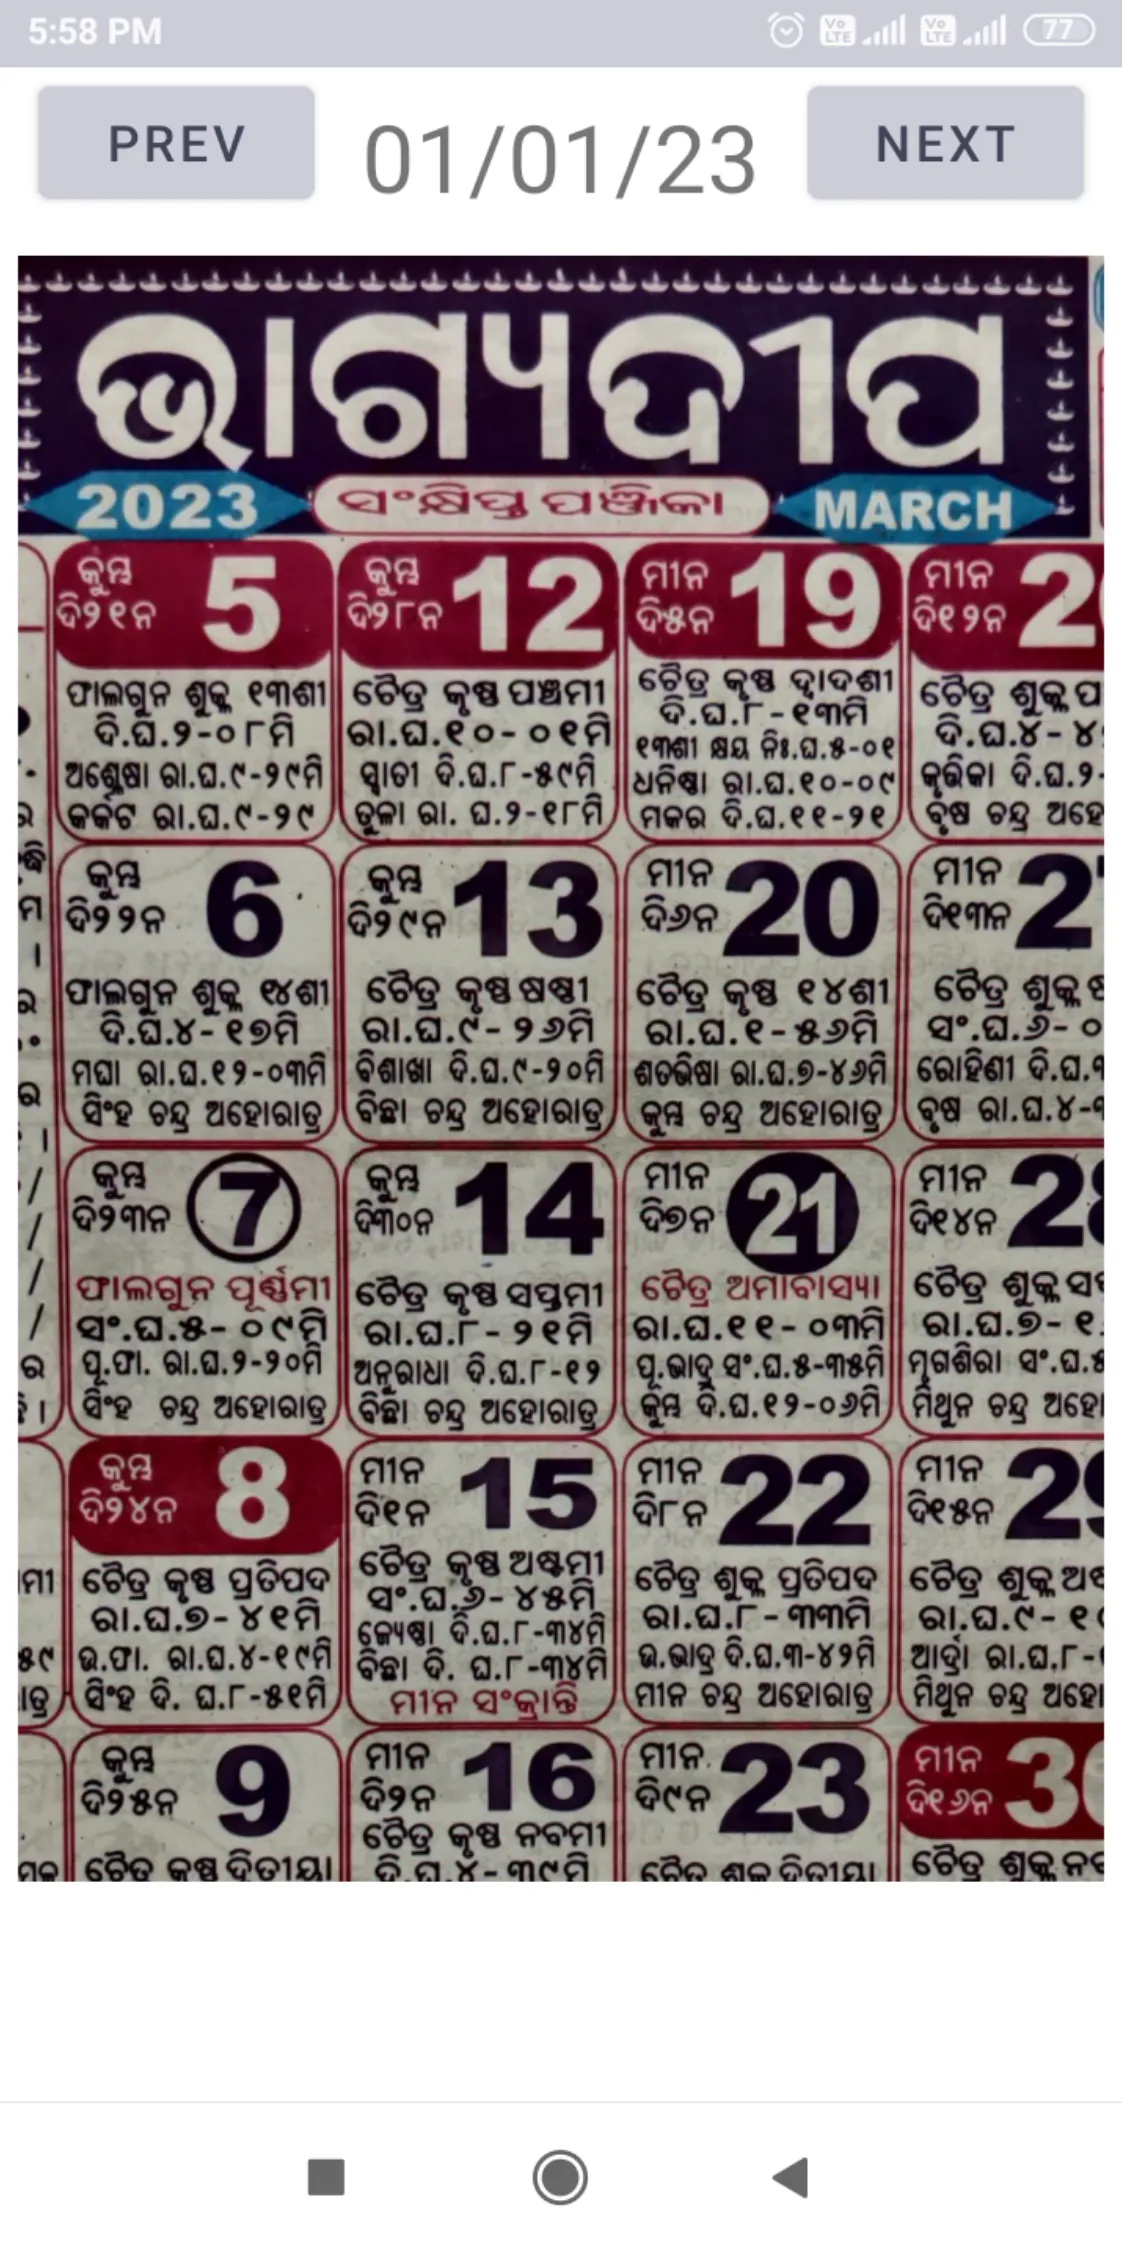 5:58 PM
Vo LTE Vo LTE 77
PREV 01/01/23 NEXT
ଭାଗ୍ୟଦୀପ
2023 ସଂକ୍ଷିପ୍ତ ପଞ୍ଜିକା MARCH
କୁମ୍ଭ ଦି୨୧ନ 5
ଫାଲଗୁନ ଶୁକ୍ଳ ୧୩ଶୀ
ଦି.ଘ.୨-୦୮ମି
ଅଶ୍ଳେଷା ରା.ଘ.୯-୨୯ମି
କର୍କଟ ରା.ଘ.୯-୨୯
କୁମ୍ଭ ଦି୨୮ନ 12
ଚୈତ୍ର କୃଷ୍ଣ ପଞ୍ଚମୀ
ରା.ଘ.୧୦-୦୧ମି
ସ୍ୱାତୀ ଦି.ଘ.୮-୫୯ମି
ତୁଳା ରା. ଘ.୨-୧୮ମି
ମୀନ ଦି୫ନ 19
ଚୈତ୍ର କୃଷ୍ଣ ଦ୍ୱାଦଶୀ
ଦି.ଘ.୮-୧୩ମି
୧୩ଶୀ କ୍ଷୟ ନିଃ.ଘ.୫-୦୧
ଧନିଷ୍ଠା ରା.ଘ.୧୦-୦୯
ମକର ଦି.ଘ.୧୧-୨୧
ମୀନ ଦି୧୨ନ 2
ଚୈତ୍ର ଶୁକ୍ଳ ପ
ଦି.ଘ.୪-୪
କୃତ୍ତିକା ଦି.ଘ.୨-
ବୃଷ ଚନ୍ଦ୍ର ଅହୋ
କୁମ୍ଭ ଦି୨୨ନ 6
ଫାଲଗୁନ ଶୁକ୍ଳ ୧୪ଶୀ
ଦି.ଘ.୪-୧୭ମି
ମଘା ରା.ଘ.୧୨-୦୩ମି
ସିଂହ ଚନ୍ଦ୍ର ଅହୋରାତ୍ର
କୁମ୍ଭ ଦି୨୯ନ 13
ଚୈତ୍ର କୃଷ୍ଣ ଷଷ୍ଠୀ
ରା.ଘ.୯-୨୬ମି
ବିଶାଖା ଦି.ଘ.୯-୨୦ମି
ବିଛା ଚନ୍ଦ୍ର ଅହୋରାତ୍ର
ମୀନ ଦି୬ନ 20
ଚୈତ୍ର କୃଷ୍ଣ ୧୪ଶୀ
ରା.ଘ.୧-୫୬ମି
ଶତଭିଷା ରା.ଘ.୭-୪୬ମି
କୁମ୍ଭ ଚନ୍ଦ୍ର ଅହୋରାତ୍ର
ମୀନ ଦି୧୩ନ 2
ଚୈତ୍ର ଶୁକ୍ଳ ଷ
ସଂ.ଘ.୬-୦
ରୋହିଣୀ ଦି.ଘ.
ବୃଷ ରା.ଘ.୪-
କୁମ୍ଭ ଦି୨୩ନ 7
ଫାଲଗୁନ ପୂର୍ଣ୍ଣମୀ
ସଂ.ଘ.୫-୦୯ମି
ପୂ.ଫା. ରା.ଘ.୨-୨୦ମି
ସିଂହ ଚନ୍ଦ୍ର ଅହୋରାତ୍ର
କୁମ୍ଭ ଦି୩୦ନ 14
ଚୈତ୍ର କୃଷ୍ଣ ସପ୍ତମୀ
ରା.ଘ.୮-୨୧ମି
ଅନୁରାଧା ଦି.ଘ.୮-୧୨
ବିଛା ଚନ୍ଦ୍ର ଅହୋରାତ୍ର
ମୀନ ଦି୭ନ 21
ଚୈତ୍ର ଅମାବାସ୍ୟା
ରା.ଘ.୧୧-୦୩ମି
ପୂ.ଭାଦ୍ର ସଂ.ଘ.୫-୩୫ମି
କୁମ୍ଭ ଦି.ଘ.୧୨-୦୬ମି
ମୀନ ଦି୧୪ନ 28
ଚୈତ୍ର ଶୁକ୍ଳ ସ
ରା.ଘ.୭-୧
ମୃଗଶିରା ସଂ.ଘ.
ମିଥୁନ ଚନ୍ଦ୍ର ଅହୋ
କୁମ୍ଭ ଦି୨୪ନ 8
ଚୈତ୍ର କୃଷ୍ଣ ପ୍ରତିପଦ
ରା.ଘ.୭-୪୧ମି
ଉ.ଫା. ରା.ଘ.୪-୧୯ମି
ସିଂହ ଦି. ଘ.୮-୫୧ମି
ମୀନ ଦି୧ନ 15
ଚୈତ୍ର କୃଷ୍ଣ ଅଷ୍ଟମୀ
ସଂ.ଘ.୬-୪୫ମି
ଜ୍ୟେଷ୍ଠା ଦି.ଘ.୮-୩୪ମି
ବିଛା ଦି. ଘ.୮-୩୪ମି
ମୀନ ସଂକ୍ରାନ୍ତି
ମୀନ ଦି୮ନ 22
ଚୈତ୍ର ଶୁକ୍ଳ ପ୍ରତିପଦ
ରା.ଘ.୮-୩୩ମି
ଉ.ଭାଦ୍ର ଦି.ଘ.୩-୪୨ମି
ମୀନ ଚନ୍ଦ୍ର ଅହୋରାତ୍ର
ମୀନ ଦି୧୫ନ 29
ଚୈତ୍ର ଶୁକ୍ଳ ଅଷ
ରା.ଘ.୯-୧
ଆର୍ଦ୍ରା ରା.ଘ.୮-
ମିଥୁନ ଚନ୍ଦ୍ର ଅହୋ
କୁମ୍ଭ ଦି୨୫ନ 9
ଚୈତ୍ର କୃଷ୍ଣ ଦ୍ୱିତୀୟା
ମୀନ ଦି୨ନ 16
ଚୈତ୍ର କୃଷ୍ଣ ନବମୀ
ଦି.ଘ.୪-୩୯ମି
ମୀନ ଦି୯ନ 23
ଚୈତ୍ର ଶୁକ୍ଳ ଦ୍ୱିତୀୟା
ମୀନ ଦି୧୬ନ 30
ଚୈତ୍ର ଶୁକ୍ଳ ନବ